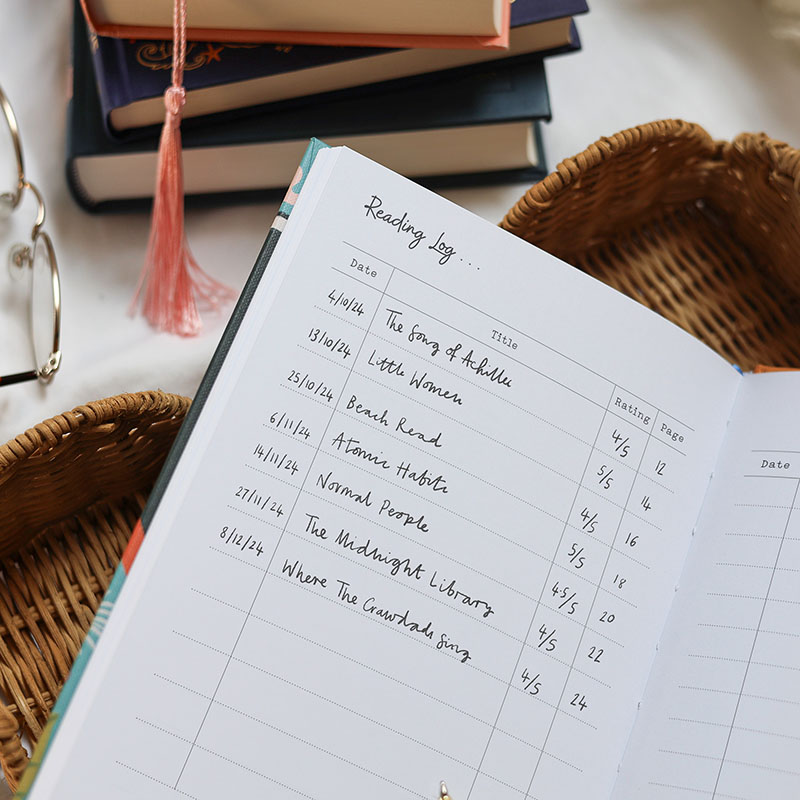 Reading Log...
Date Title Rating Page
4/10/24 The Song of Achilles 4/5 12
13/10/24 Little Women 5/5 14
25/10/24 Beach Read 4/5 16
6/11/24 Atomic Habits 5/5 18
14/11/24 Normal People 4.5/5 20
27/11/24 The Midnight Library 4/5 22
8/12/24 Where The Crawdads Sing 4/5 24
Date